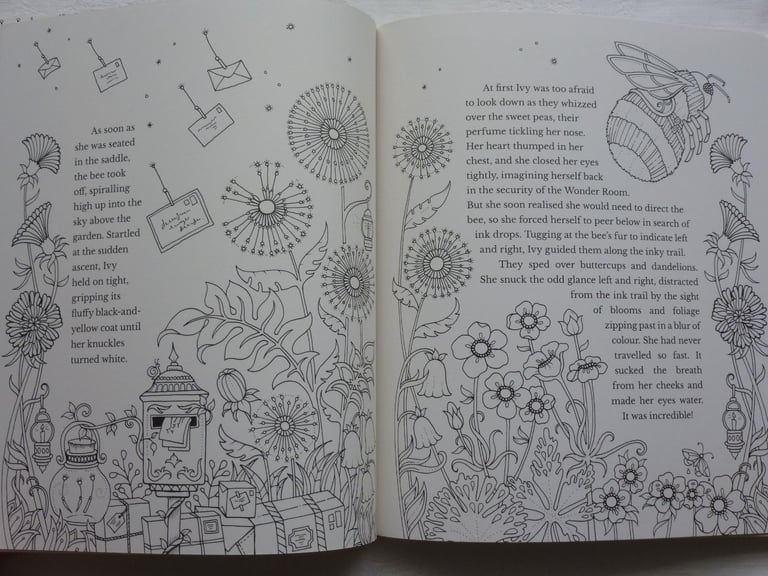 As soon as
she was seated
in the saddle,
the bee took
off, spiralling
high up into the
sky above the
garden. Startled
at the sudden
ascent, Ivy
held on tight,
gripping its
fluffy black-and-
yellow coat until
her knuckles
turned white.
At first Ivy was too afraid
to look down as they whizzed
over the sweet peas, their
perfume tickling her nose.
Her heart thumped in her
chest, and she closed her eyes
tightly, imagining herself back
in the security of the Wonder Room.
But she soon realised she would need to direct the
bee, so she forced herself to peer below in search of
ink drops. Tugging at the bee's fur to indicate left
and right, Ivy guided them along the inky trail.
They sped over buttercups and dandelions.
She snuck the odd glance left and right, distracted
from the ink trail by the sight
of blooms and foliage
zipping past in a blur of
colour. She had never
travelled so fast. It
sucked the breath
from her cheeks and
made her eyes water.
It was incredible!